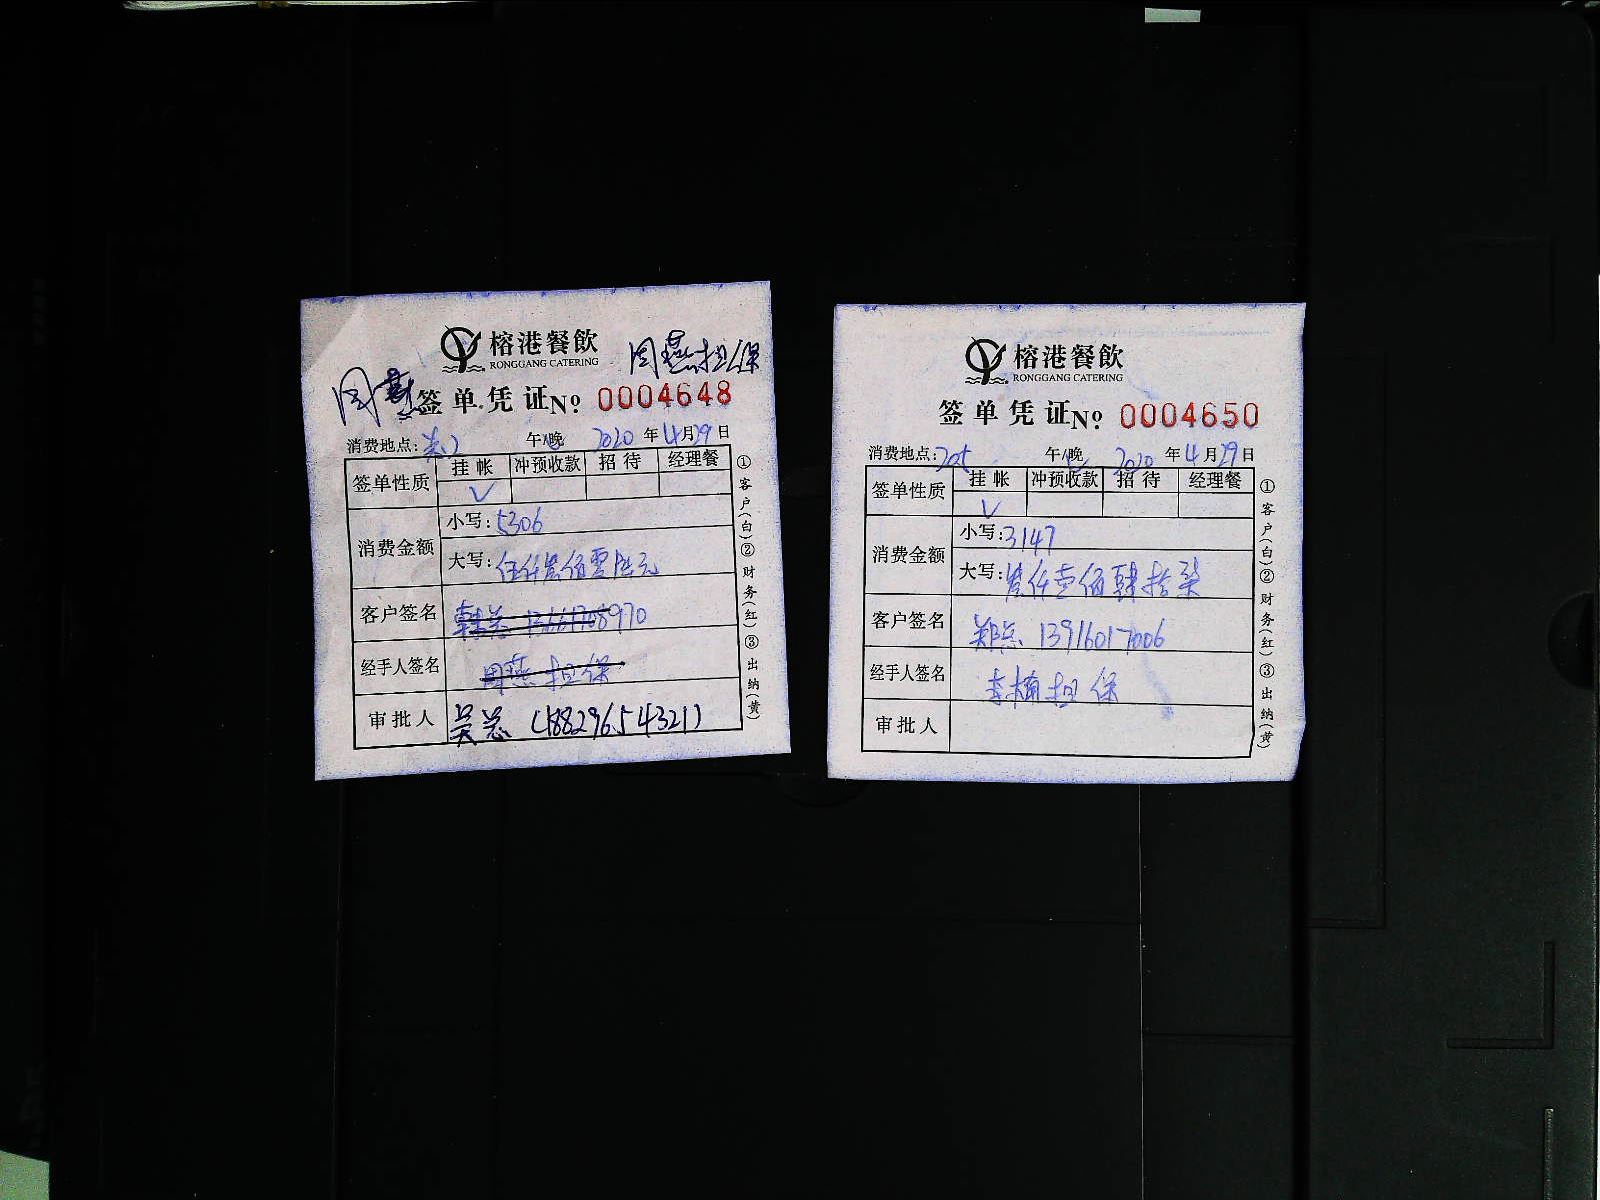 榕港餐飲
RONGGANG CATERING
周燕担保
周燕
签单凭证 № 0004648
消费地点: 午/晚 2020年4月29日
签单性质 挂帐 冲预收款 招待 经理餐
√
消费金额 小写: 5306
大写: 伍仟叁佰零陆元
客户签名 韩总
经手人签名 周燕担保
审批人 吴总 (18829654321)
①客户(白)②财务(红)③出纳(黄)
榕港餐飲
RONGGANG CATERING
签单凭证 № 0004650
消费地点: 205 午/晚 2020年4月29日
签单性质 挂帐 冲预收款 招待 经理餐
√
消费金额 小写: 3147
大写: 叁仟壹佰肆拾柒
客户签名 郑总 13916017006
经手人签名 李楠担保
审批人
①客户(白)②财务(红)③出纳(黄)